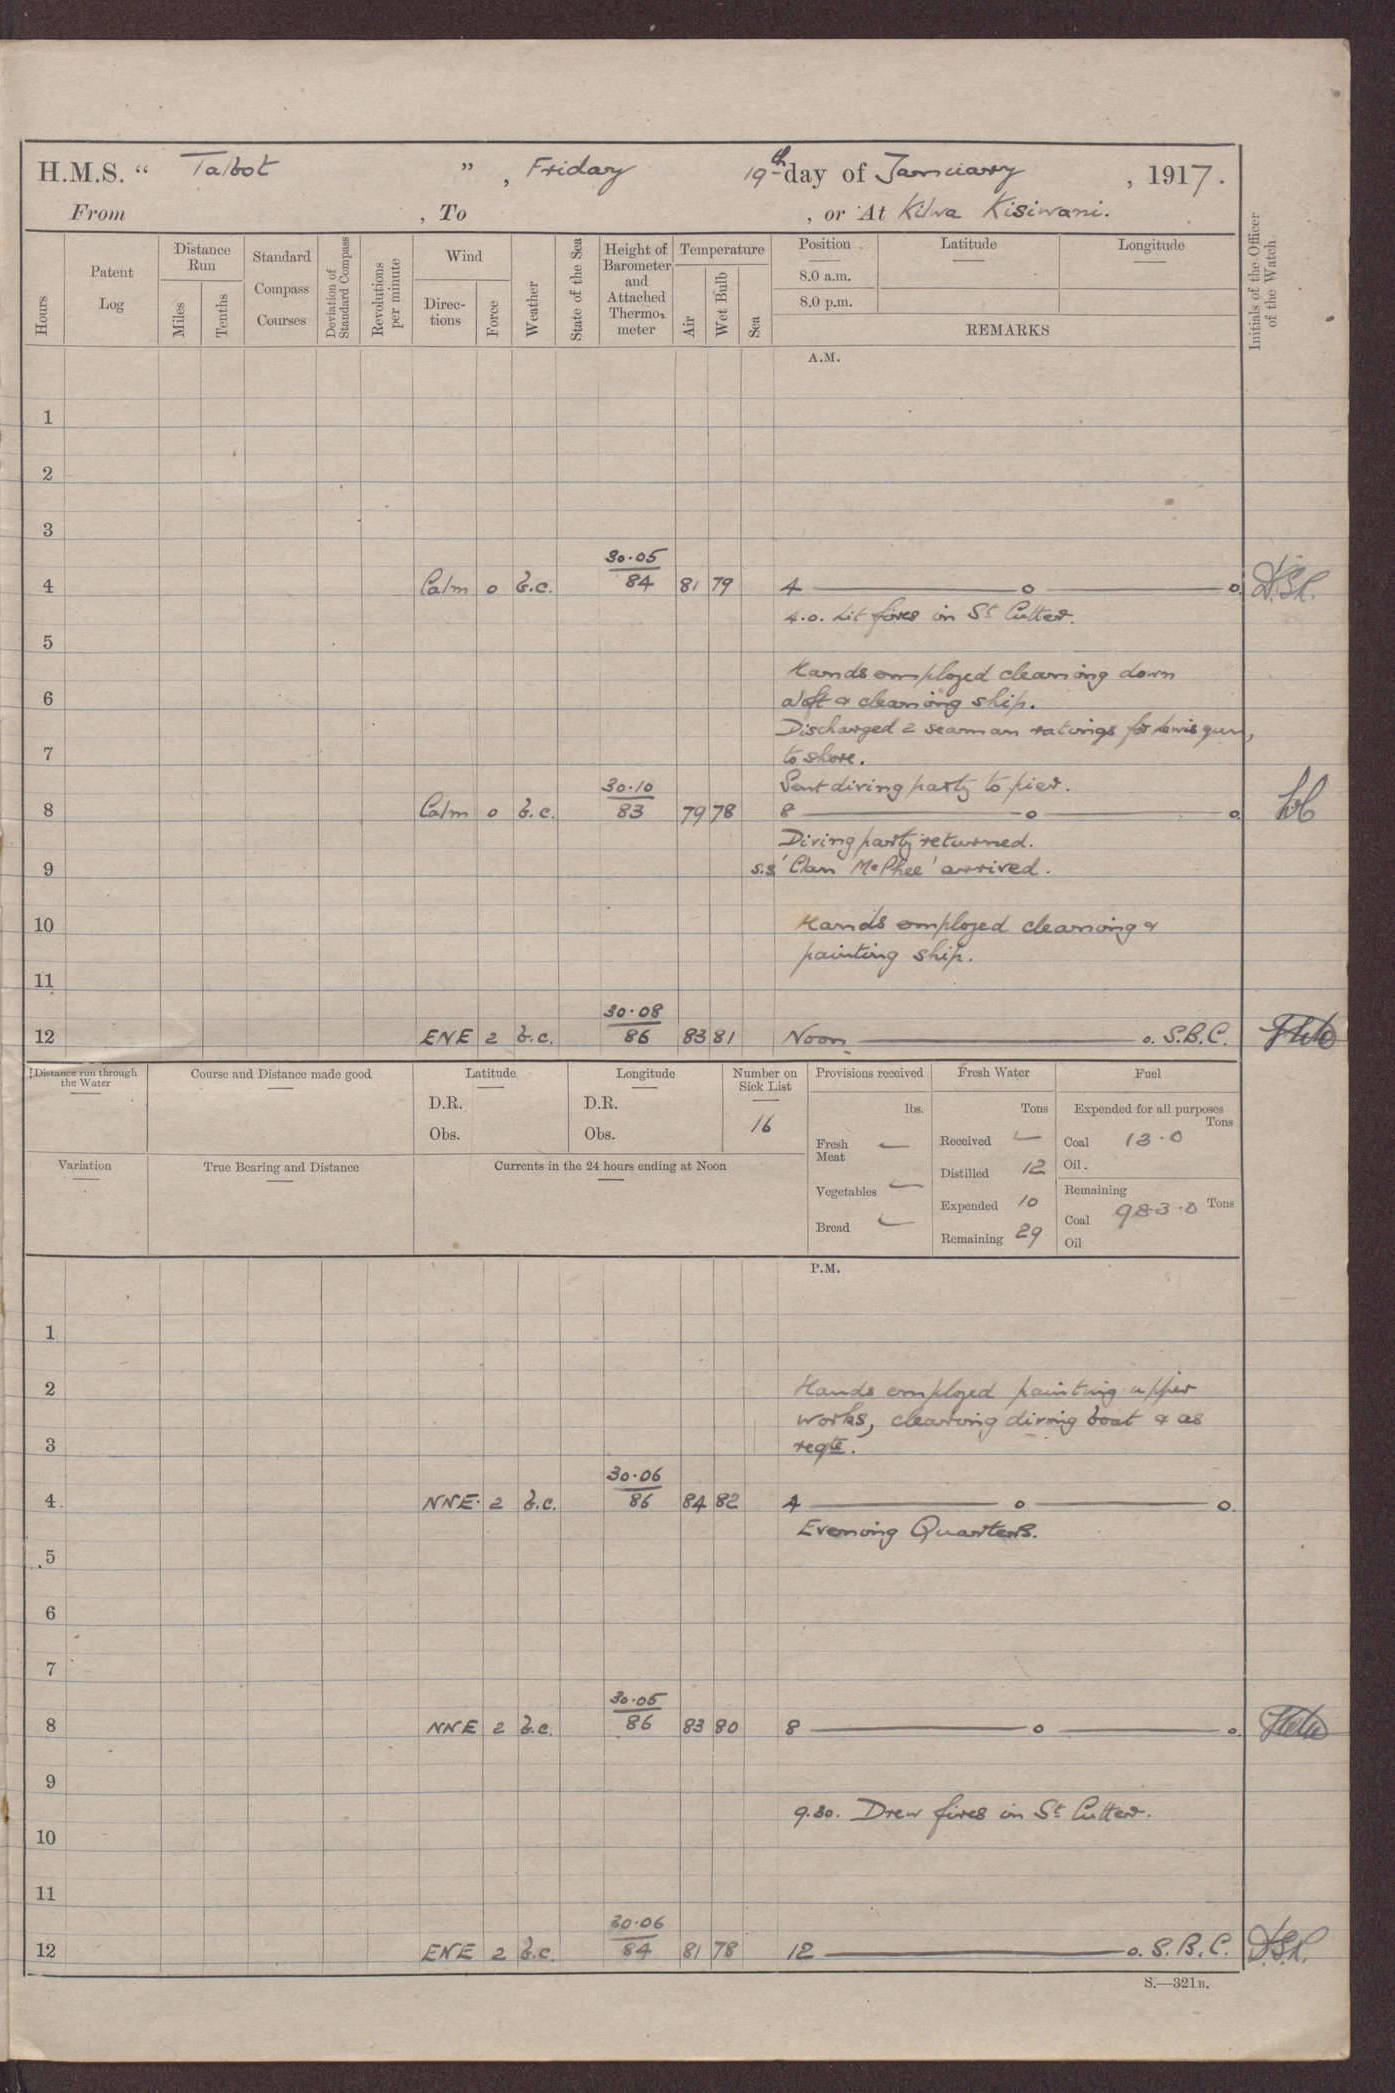 H.M.S. " Talbot " , Friday 19th day of January , 1917.
From , To , or At Kilwa Kisiwani.
Hours
Patent Log
Distance Run
Miles
Tenths
Standard Compass Courses
Deviation of Standard Compass
Revolutions per minute
Wind
Directions
Force
Weather
State of the Sea
Height of Barometer and Attached Thermometer
Temperature
Air
Wet Bulb
Sea
Position
Latitude
Longitude
8.0 a.m.
8.0 p.m.
REMARKS
Initials of the Officer of the Watch.
A.M.
1
2
3
30.05
4 Calm 0 b.c. 84 81 79 4 o o. D.S.R.
4.0. Lit fires in St Cutter.
5
Hands employed cleaning down
6 aloft & cleaning ship.
Discharged 2 seaman ratings for Lewis gun,
7 to shore.
30.10 Sent diving party to pier.
8 Calm 0 b.c. 83 79 78 8 o o.
Diving party returned.
9 S.S 'Clan McPhee' arrived.
10 Hands employed cleaning &
painting ship.
11
30.08
12 ENE 2 b.c. 86 83 81 Noon o. S.B.C.
Distance run through the Water
Course and Distance made good
Latitude
D.R.
Obs.
Longitude
D.R.
Obs.
Number on Sick List
16
Provisions received
lbs.
Fresh Meat
Vegetables
Bread
Fresh Water
Tons
Received
Distilled 12
Expended 10
Remaining 29
Fuel
Expended for all purposes
Tons
Coal 13.0
Oil.
Remaining
Coal 983.0 Tons
Oil
Variation
True Bearing and Distance
Currents in the 24 hours ending at Noon
P.M.
1
2 Hands employed painting upper
works, cleaning diving boat & as
3 reqte.
30.06
4 NNE. 2 b.c. 86 84 82 4 o o.
Evening Quarters.
5
6
7
30.05
8 NNE 2 b.c. 86 83 80 8 o o.
9
9.30. Drew fires in St Cutter.
10
11
30.06
12 ENE 2 b.c. 84 81 78 12 o. S.B.C. D.S.R.
S.—321B.